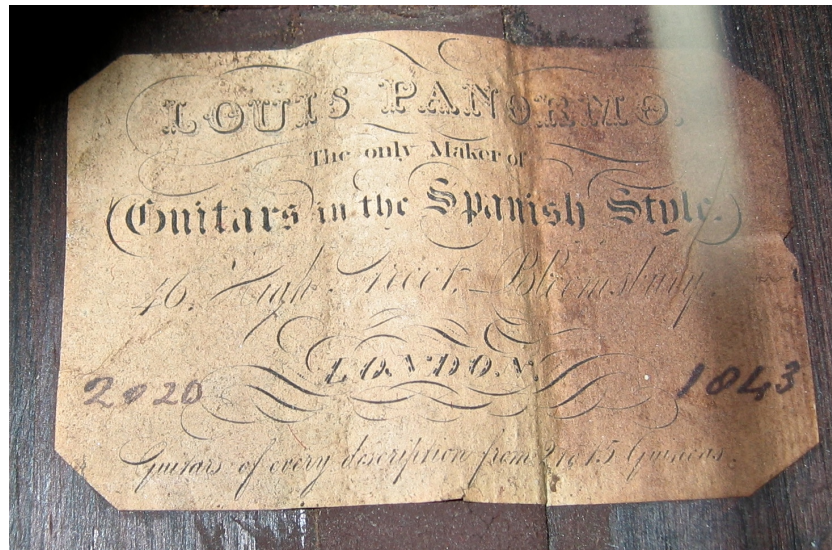 LOUIS PANORMO.
The only Maker of
Guitars in the Spanish Style.
46, High Street, Bloomsbury
LONDON.
2020 1843
Guitars of every description from 2 to 15 Guineas.